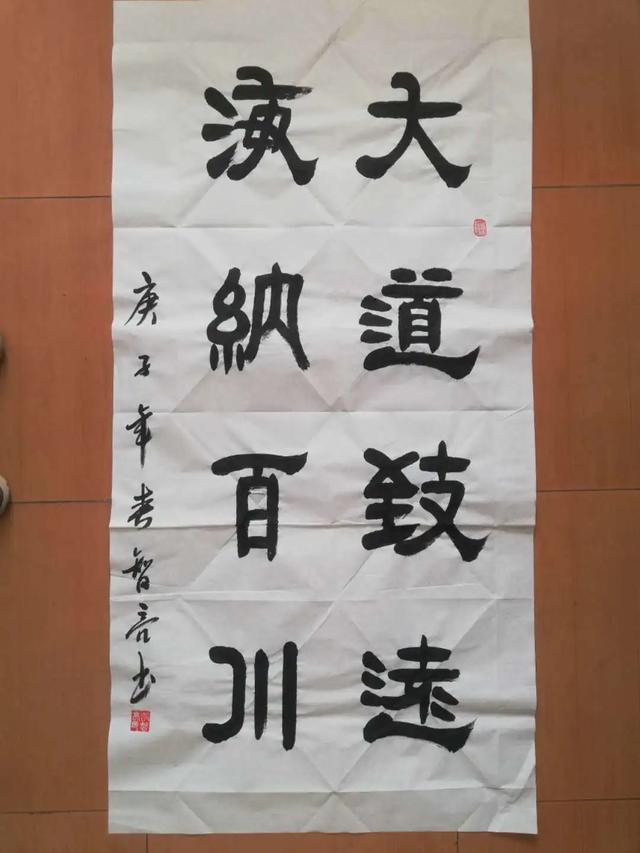 大道致远
海納百川
庚子年春智亮书